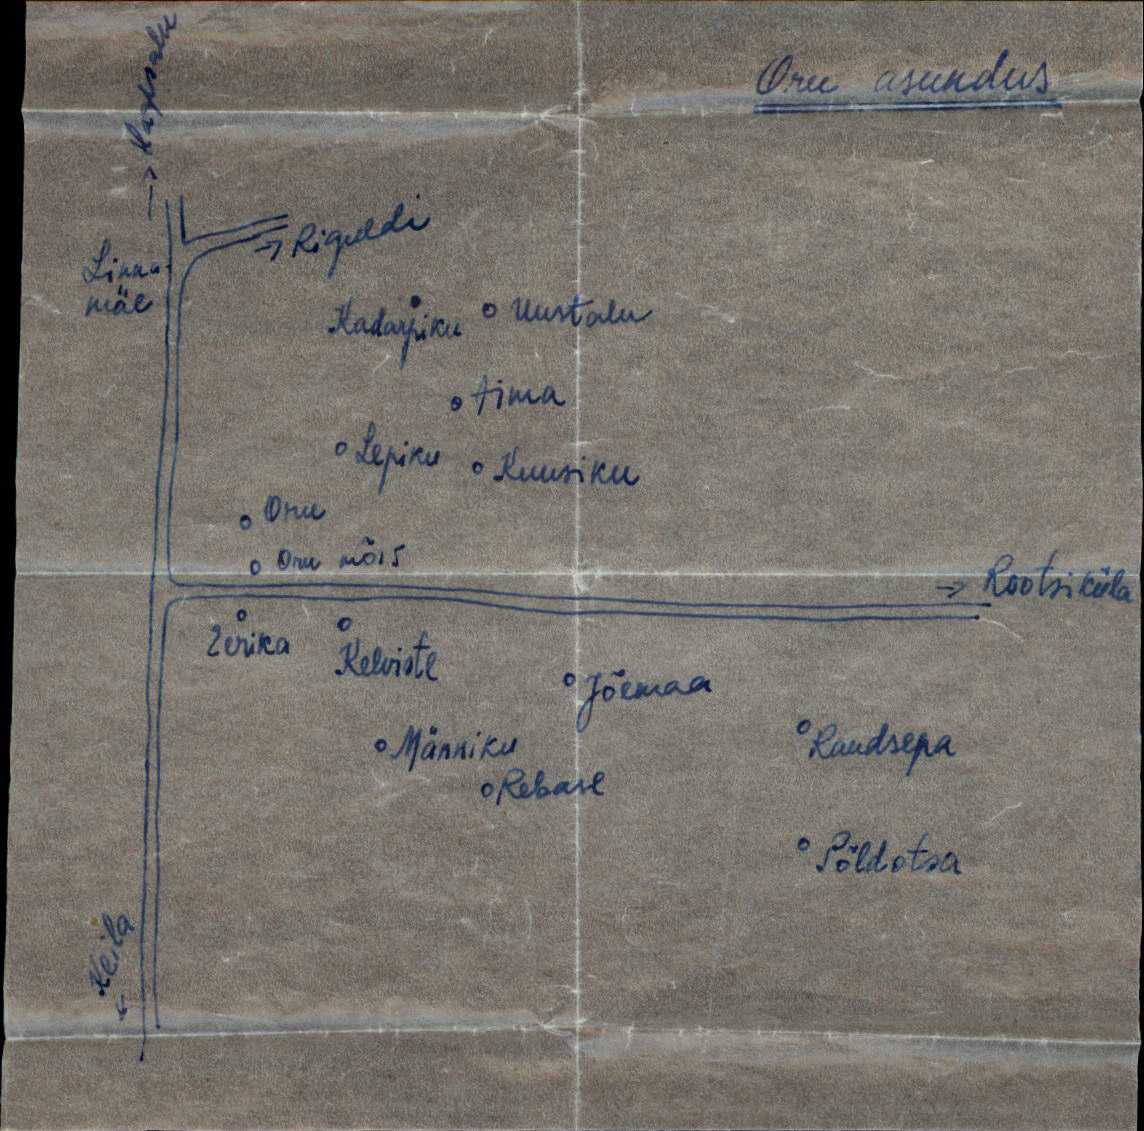 Oru asundus
→ Haapsalu
→ Riguldi
Linna-
mäe
Kadarpiku
Uustalu
Aima
Lepiku
Kuusiku
Oru
Oru mõis
→ Rootsiküla
Kelviste
Jõemaa
Männiku
Raudsepa
Rebase
Põldotsa
← Keila